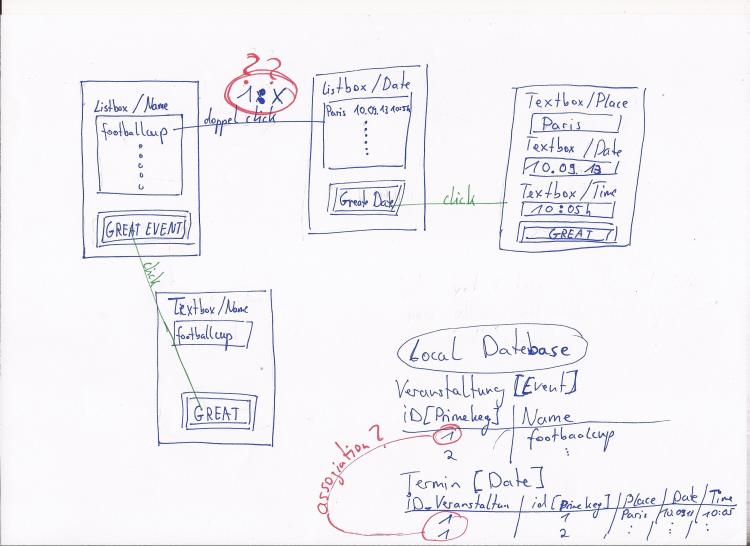 ??
1:X
Listbox/Name
footballcup
doppel click
GREAT EVENT
click
Textbox/Name
footballcup
GREAT
Listbox/Date
Paris 10.09.13 10:05h
Greate Date
click
Textbox/Place
Paris
Textbox/Date
10.09.13
Textbox/Time
10:05h
GREAT
Local Datebase
Veranstaltung [Event]
iD[Primekeg] Name
1 footbaalcup
2
assoziation?
Termin [Date]
iD_Veranstaltun / id[Primekeg] / Place / Date / Time
1 1 Paris 10.09.13 10:05
1 2